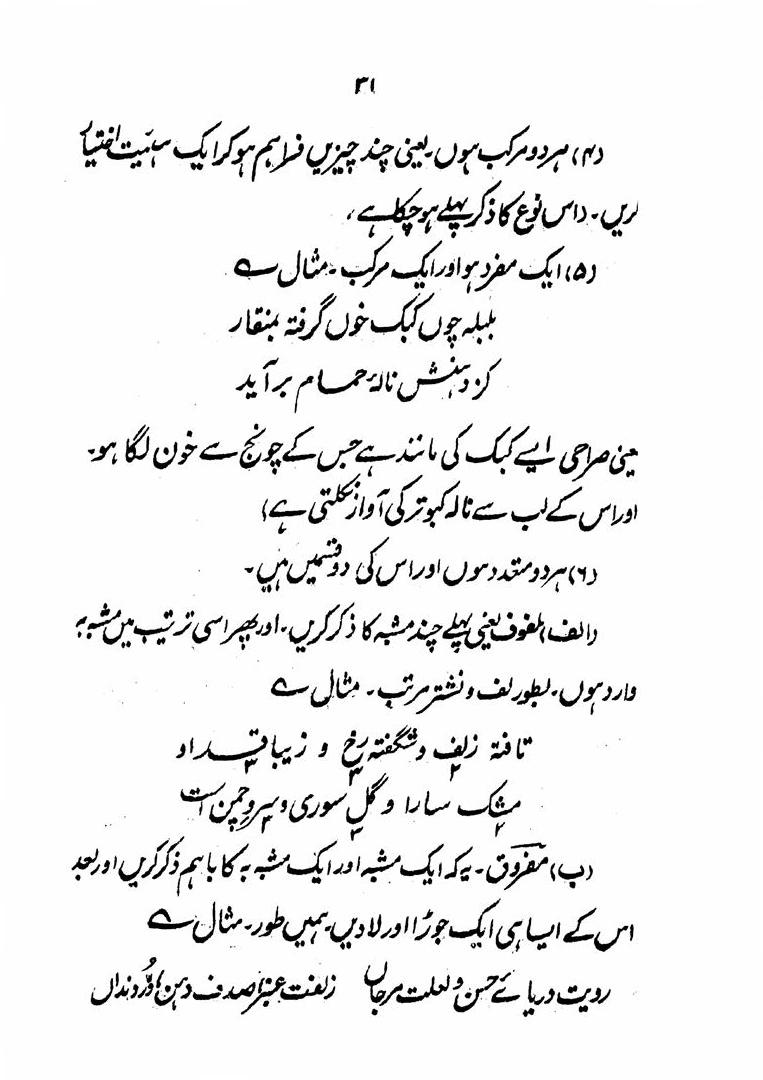 ۳۱
(۴) ہر دو مرکب ہوں۔ یعنی چند چیزیں فراہم ہو کر ایک ہئیت اختیار
کریں۔ (اس نوع کا ذکر پہلے ہو چکا ہے)
(۵) ایک مفرد ہو اور ایک مرکب۔ مثال ؎
بلبلہ چوں کبک خوں گرفتہ بمنقار
کز دہنش نالۂ حمام بر آید
یعنی صراحی ایسے کبک کی مانند ہے جس کے چونچ سے خون لگا ہو۔
اور اس کے لب سے نالہ کبوتر کی آواز نکلتی ہے)
(۶) ہر دو متعدد ہوں اور اس کی دو قسمیں ہیں۔
(الف) ملفوف یعنی پہلے چند مشبہ کا ذکر کریں۔ اور پھر اسی ترتیب میں مشبہ بہ
وارد ہوں۔ بطور لف و نشتر مرتب۔ مثال ؎
تافتہ زلف و شگفتہ رخ و زیبا قد او
مشک سارا و گل سوری و سرو چمن است
(ب) مفروق۔ یہ کہ ایک مشبہ اور ایک مشبہ بہ کا باہم ذکر کریں اور بعد
اس کے ایسا ہی ایک جوڑا اور لادیں۔ ہمیں طور۔ مثال ؎
رویت دریائے حسن و لعلت مرجاں زلفت عنبر صدف دہن در دنداں